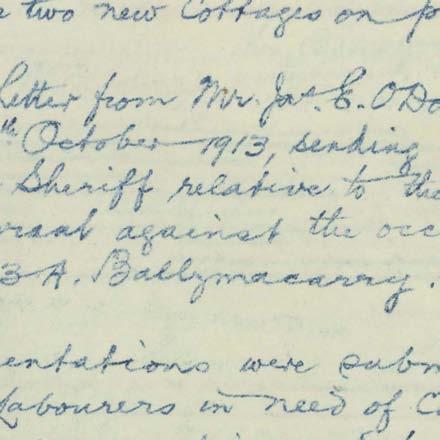 two new Cottages on
Letter from Mr. Jas. E. O'Do
th October 1913, sending
Sheriff relative to the
against the occ
3A. Ballymacarry.
entations were subm
Labourers in need of C